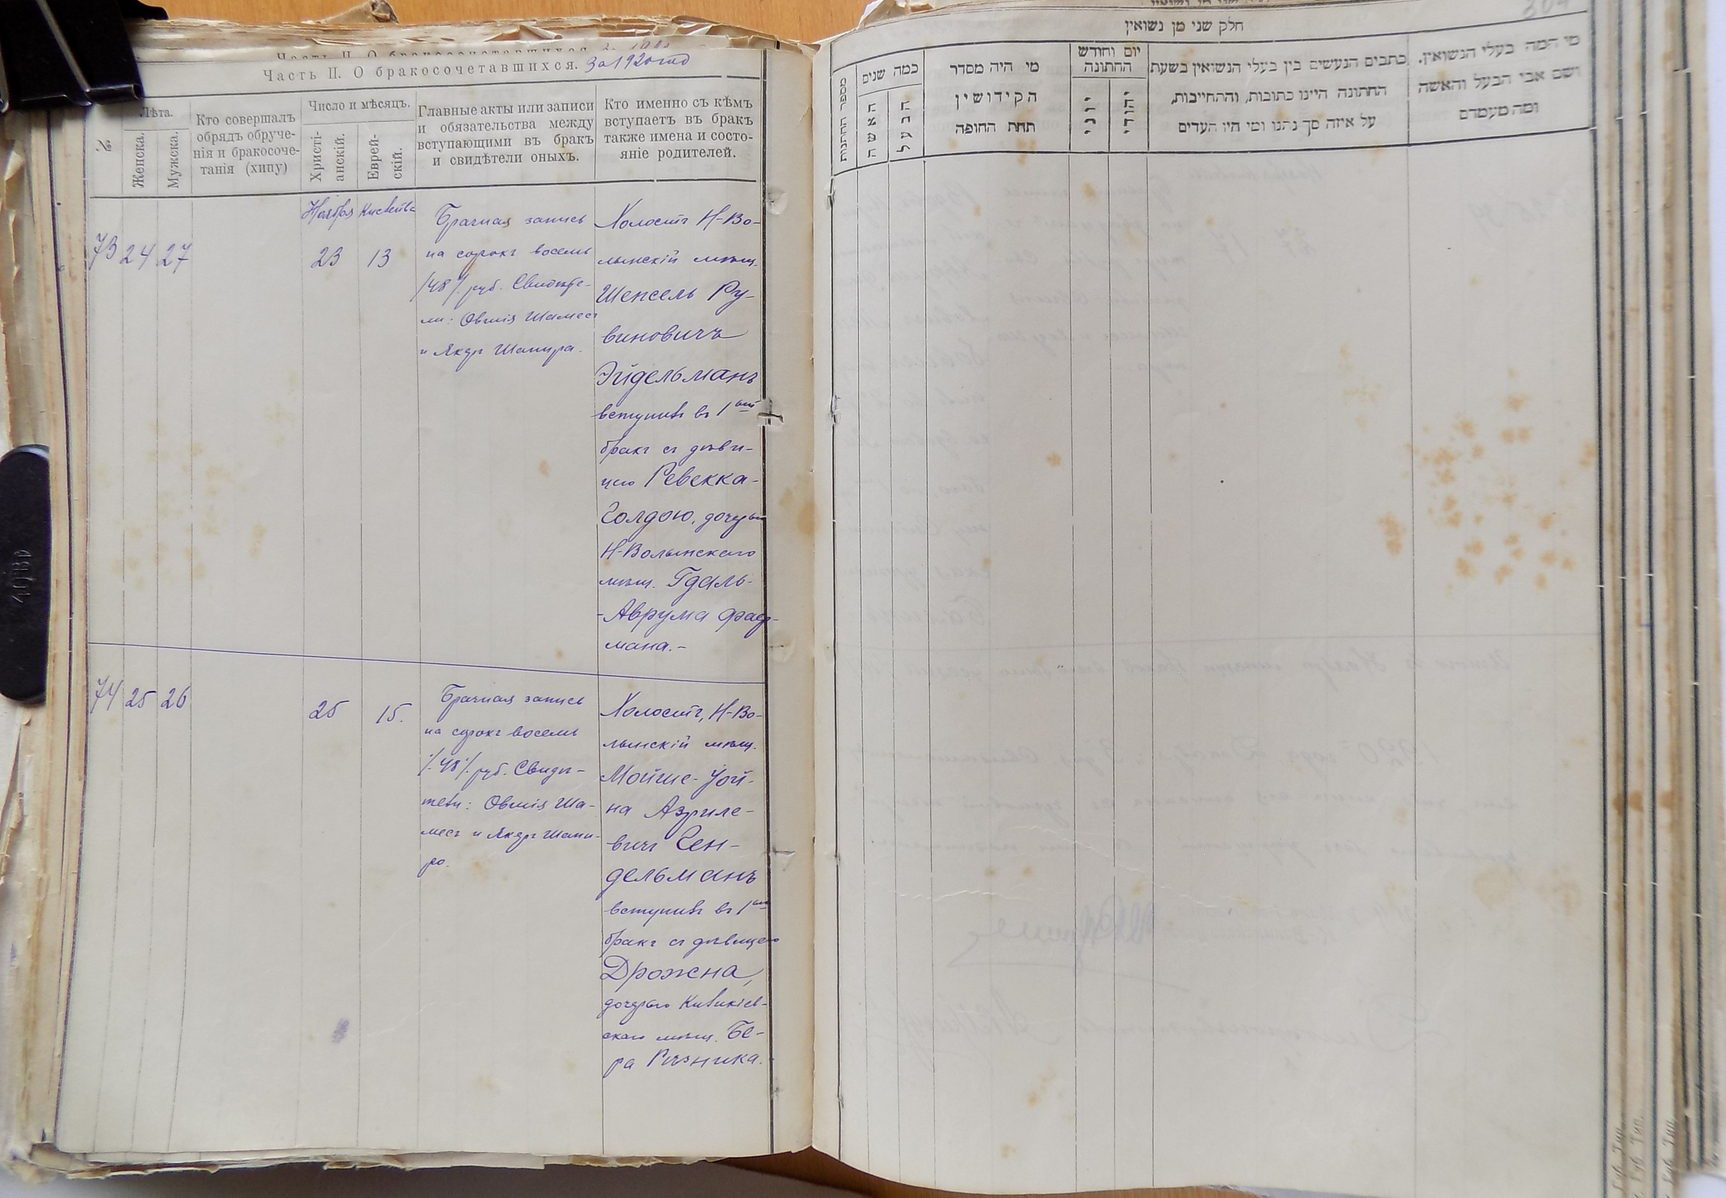 Часть II. О бракосочетавшихся. За 1920 год
№
Лѣта.
Женска.
Мужска.
Кто совершалъ
обрядъ обруче-
нія и бракосоче-
танія (хипу)
Число и мѣсяцъ.
Христі-
анскій.
Еврей-
скій.
Главные акты или записи
и обязательства между
вступающими въ бракъ
и свидѣтели оныхъ.
Кто именно съ кѣмъ
вступаетъ въ бракъ
также имена и состо-
яніе родителей.
73 24 27
Ноября
23
Кислейва
13
Брачная запись
на сорокъ восемь
/48/ руб. Свидѣте-
ли: Овшія Шамесъ
и Янкръ Шапира.
Холостъ Н-Во-
лынскій мѣщ.
Шепсель Ру-
виновичъ
Эйдельманъ
вступивъ въ 1ый
бракъ съ дѣви-
цею Ревекка-
Голдою, дочерью
Н-Волынского
мѣщ. Гдаль-
-Аврума Фрад-
мана.-
74 25 26
25
15.
Брачная запись
на сорокъ восемь
/48/ руб. Свидѣ-
тели: Овшія Ша-
месъ и Янкръ Шапи-
ро.
Холостъ, Н-Во-
лынскій мѣщ.
Мойше-Уой-
на Азриле-
вичъ Сен-
дельманъ
вступивъ въ 1ый
бракъ съ дѣвицею
Дрожна,
дочерью
скаго мѣщ. Бе-
ра Ризника.
חלק שני מן נשואין
מספר החתונות
כמה שנים
האשה
הבעל
מי היה מסדר
הקידושין
תחת החופה
יום וחודש
החתונה
יוני
יהודי
כתבים הנעשים בין בעלי הנשואין בשעת
החתונה היינו כתובות, והתחייבות,
על איזה סך נתנו ומי היו העדים
מי המה בעלי הנשואין.
ושם אבי הבעל והאשה
ומה מעמדם